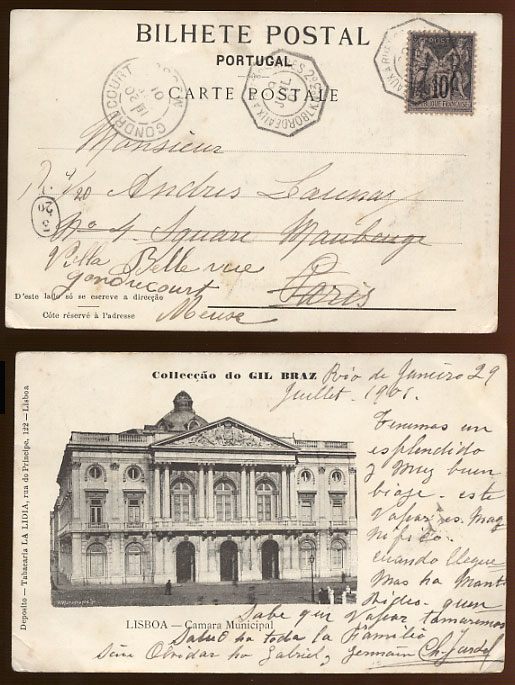 BILHETE POSTAL
PORTUGAL
CARTE POSTALE
GONDRECOURT
BORDEAUX
10
Monsieur
Andres Launay
Nº 4. Square Maubeuge
Villa Belle vue
Gondrecourt
Paris
Meuse
D'este lado só se escreve a direcção
Côte réservé à l'adresse
Collecção do GIL BRAZ
Rio de Janeiro 29
Juillet. 1901.
Deposito — Tabacaria LA LIDIA, rua do Principe, 122 — Lisboa
Tenemos un
esplendido
y muy buen
biaje. este
Vapor es mag
nifico.
cuando llegue
Mas ha Mont
video. quiza
LISBOA — Camara Municipal
Sabe que Vapor tomaremos
Salud ha toda la Familia
Sin Olvidar ha Gabriel y Germain Ch.